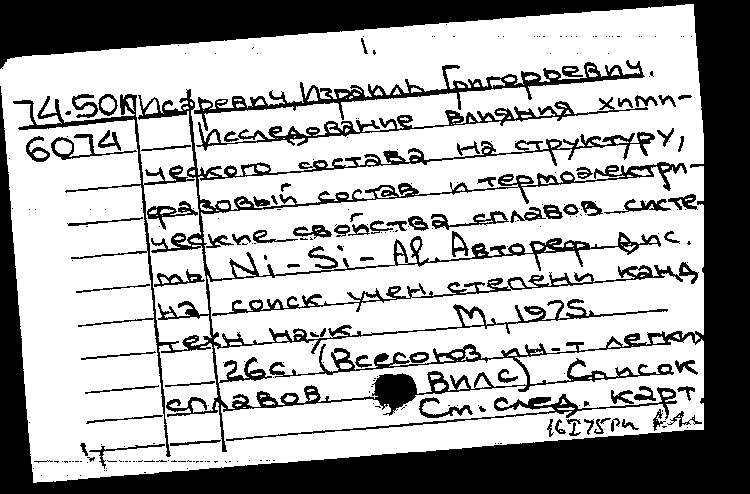 1.
74.50К Исаревич, Израиль Григорьевич.
6074 Исследование влияния хими-
ческого состава на структуру,
фазовый состав и термоэлектри-
ческие свойства сплавов систе-
мы Ni-Si-Al. Автореф. дис.
на соиск. учен. степени канд.
техн. наук. М., 1975.
26с. (Всесоюз. ин-т легких
сплавов. ВИЛС). Список
См. след. карт.
16I75